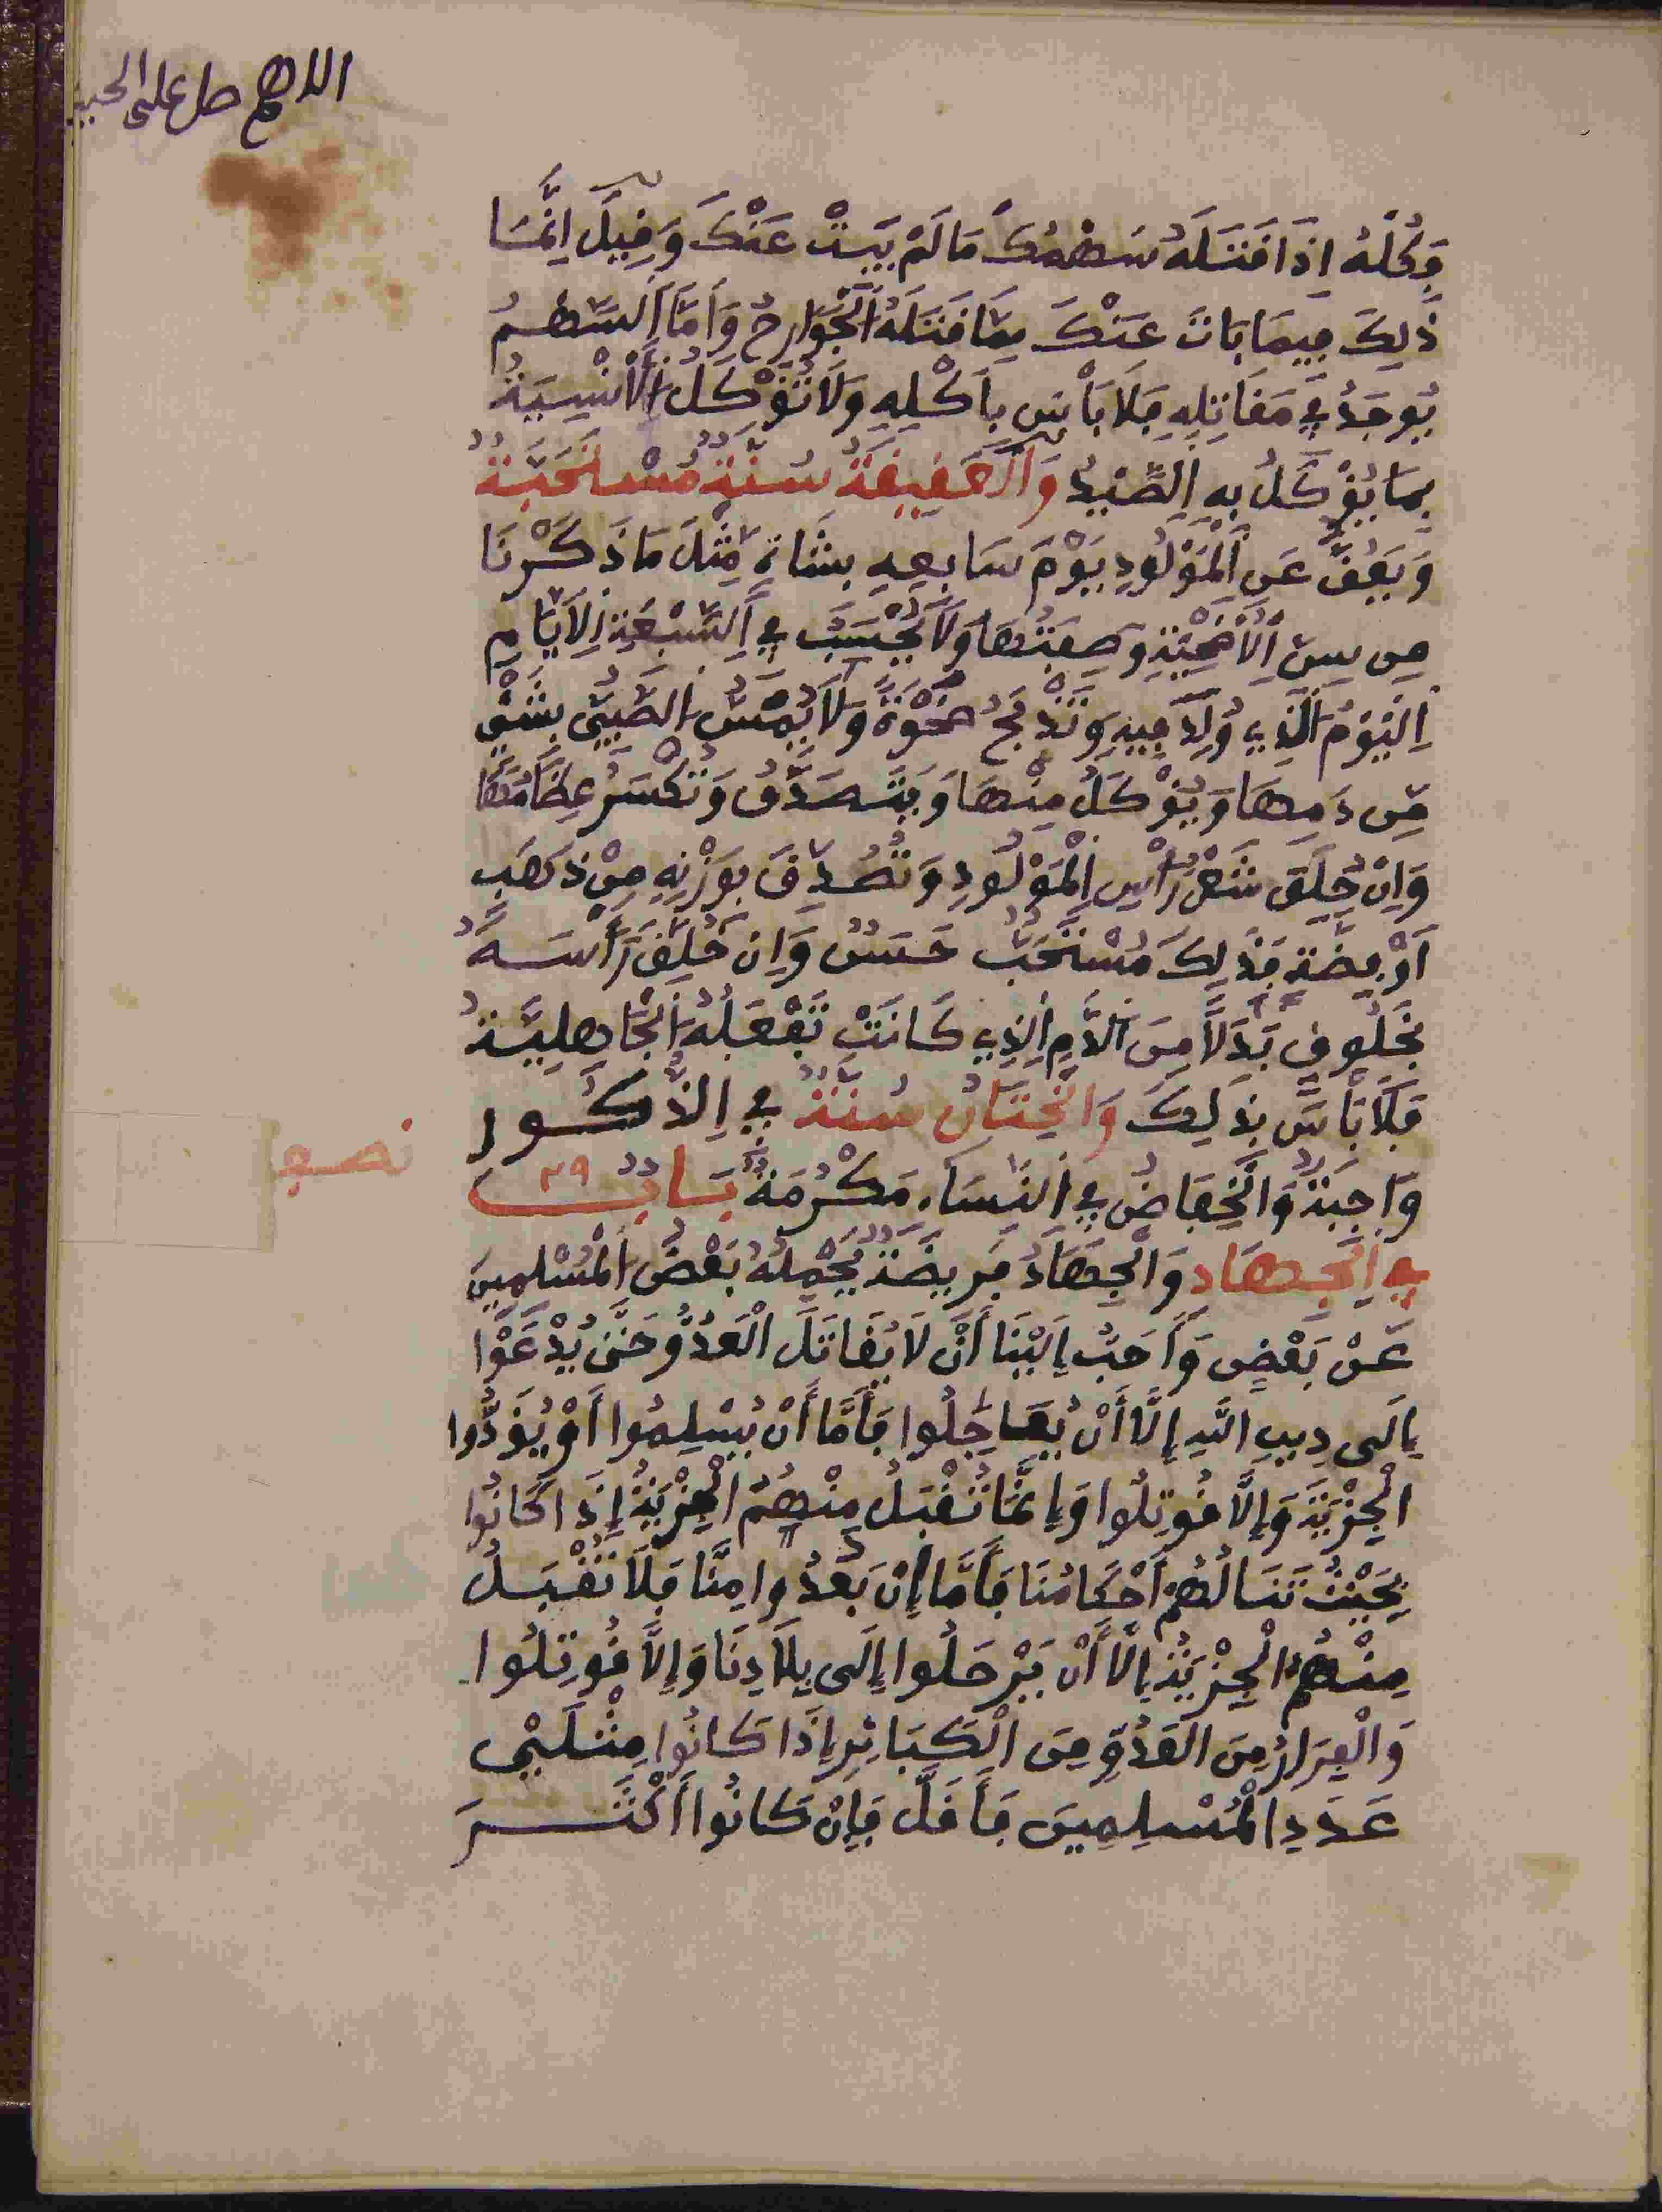 اللاهم صل على الحبيب
فَكُلْهُ اِذَا قَتَلَهُ سَهْمُكَ مَا لَمْ يَبِتْ عَنْكَ وَقِيلَ اِنَّمَا
ذَٰلِكَ فِيمَا بَاتَ عَنْكَ مِمَّا قَتَلَهُ الْجَوَارِحُ وَأَمَّا السَّهْمُ
يُوجَدُ فِي مَقَاتِلِهِ فَلَا بَأْسَ بِأَكْلِهِ وَلَا تُؤْكَلُ الْأَنْسِيَةُ
بِمَا يُؤْكَلُ بِهِ الصَّيْدُ وَالْعَقِيقَةُ سُنَّةٌ مُسْتَحَبَّةٌ
وَيُعَقُّ عَنِ الْمَوْلُودِ يَوْمَ سَابِعِهِ بِشَاةٍ مِثْلَ مَا ذَكَرْنَا
مِن سِنِّ الْأُضْحِيَّةِ وَصِفَتُهَا وَلَا يُحْسَبُ فِي السَّبْعَةِ الْأَيَّامِ
الْيَوْمُ الَّذِي وُلِدَ فِيهِ وَتُذْبَحُ ضَحْوَةً وَلَا يُمَسُّ الصَّبِيُّ بِشَيْءٍ
مِّن دَمِهَا وَيُؤْكَلُ مِنْهَا وَيُتَصَدَّقُ وَتُكْسَرُ عِظَامُهَا
وَإِنْ حُلِقَ شَعْرُ رَأْسِ الْمَوْلُودِ وَتُصُدِّقَ بِوَزْنِهِ مِنْ ذَهَبٍ
أَوْ فِضَّةٍ فَذَٰلِكَ مُسْتَحَبٌّ حَسَنٌ وَإِن خُلِّقَ رَأْسَهُ
بِخَلُوقٍ بَدَلًا مِنَ الدَّمِ الَّذِي كَانَتْ تَفْعَلُهُ الْجَاهِلِيَّةُ
فَلَا بَأْسَ بِذَٰلِكَ وَالْخِتَانُ سُنَّةٌ فِي الذُّكُور
وَاجِبَةٌ وَالْخِفَاضُ فِي النِّسَاء مَكْرُمَةٌ بَابٌ ٢٩
نصف
فِي الْجِهَاد وَالْجِهَادُ فَرِيضَةٌ يَحْمِلُهُ بَعْضُ الْمُسْلِمِينَ
عَنْ بَعْضٍ وَأَحَبُّ إِلَيْنَا أَنْ لَا يُقَاتَلَ الْعَدُوُّ حَتَّى يُدْعَوْا
إِلَى دِينِ اللَّهِ إِلَّا أَنْ يُعَاجِلُوا فَأَمَّا أَنْ يُسْلِمُوا أَوْ يُؤَدُّوا
الْجِزْيَةَ وَإِلَّا قُوتِلُوا وَإِنَّمَا تُقْبَلُ مِنْهُمُ الْجِزْيَةُ إِذَا كَانُوا
بِحَيْثُ تَنَالُهُمْ أَحْكَامُنَا فَأَمَّا إِنْ بَعُدُوا مِنَّا فَلَا تُقْبَلُ
مِنْهُمُ الْجِزْيَةُ إِلَّا أَنْ يَرْحَلُوا إِلَى بِلَادِنَا وَإِلَّا قُوتِلُوا
وَالْفِرَارُ مِنَ الْعَدُوِّ مِنَ الْكَبَائِرِ إِذَا كَانُوا مِثْلَيْ
عَدَدِ الْمُسْلِمِينَ فَأَقَلَّ فَإِنْ كَانُوا أَكْثَرَ